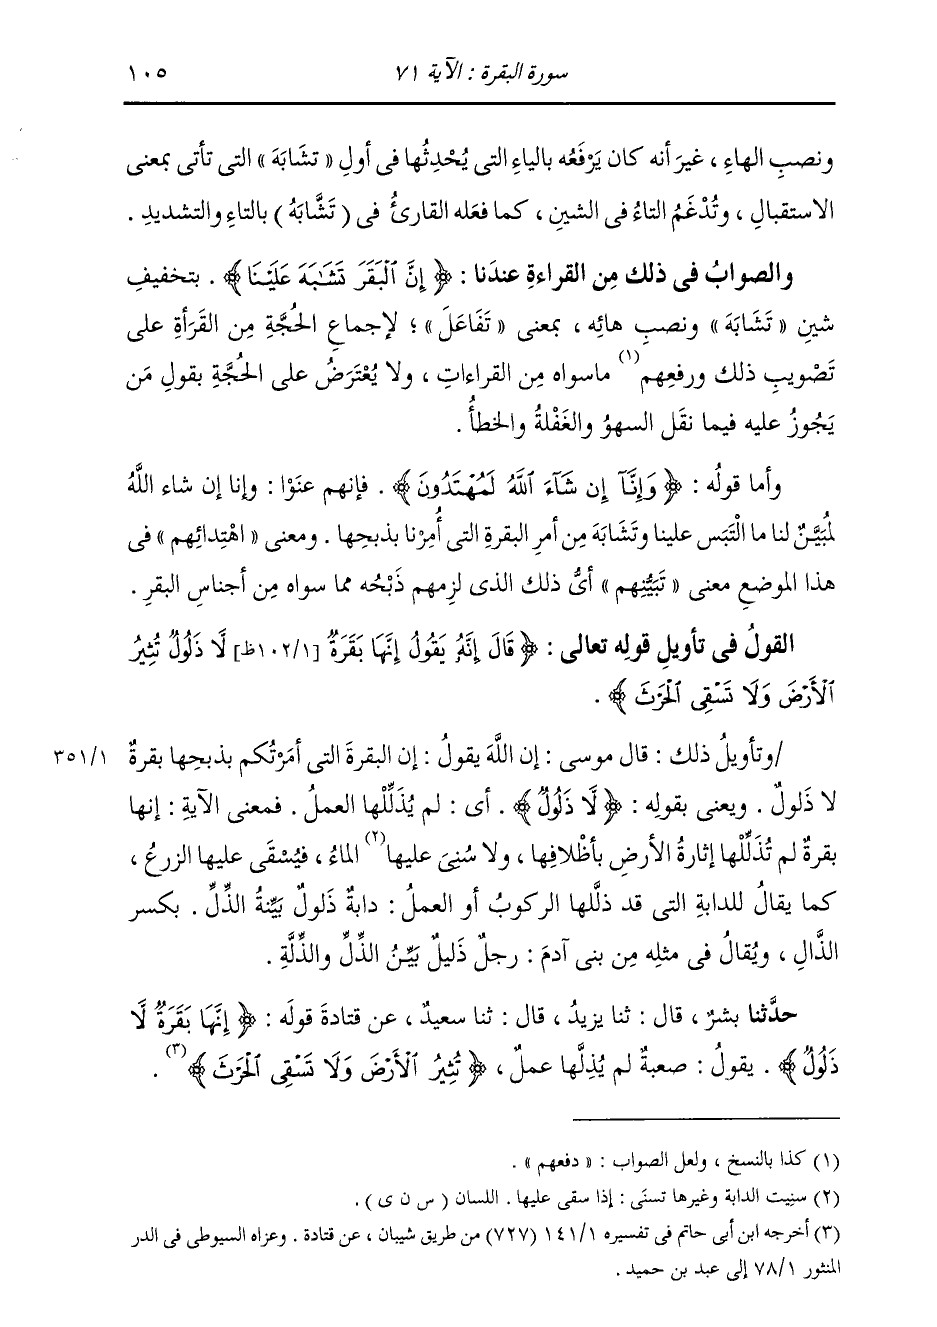 سورة البقرة : الآية ٧١
١٠٥
ونصبِ الهاءِ ، غيرَ أنه كان يَرْفَعُه بالياءِ التى يُحْدِثُها فى أولِ « تشَابَهَ » التى تأتى بمعنى
الاستقبالِ ، وتُدْغَمُ التاءُ فى الشينِ ، كما فعَله القارئُ فى ( تَشَّابَهُ ) بالتاءِ والتشديدِ .
والصوابُ فى ذلك مِن القراءةِ عندَنا : ﴿ إِنَّ ٱلْبَقَرَ تَشَـٰبَهَ عَلَيْنَا ﴾ . بتخفيفِ
شينِ « تَشَابَهَ » ونصبِ هائِه ، بمعنى « تَفَاعَلَ » ؛ لإجماعِ الحُجَّةِ مِن القَرَأةِ على
تَصْويبِ ذلك ورفعِهم(١) ماسواه مِن القراءاتِ ، ولا يُعْتَرَضُ على الحُجَّةِ بقولِ مَن
يَجُوزُ عليه فيما نقَل السهوُ والغَفْلةُ والخطأُ .
وأما قولُه : ﴿ وَإِنَّآ إِن شَآءَ ٱللَّهُ لَمُهْتَدُونَ ﴾ . فإنهم عنَوْا : وإنا إن شاء اللَّهُ
لمُبَيَّنٌ لنا ما الْتَبَس علينا وتَشَابَهَ مِن أمرِ البقرةِ التى أُمِرْنا بذبحِها . ومعنى « اهْتِدائِهم » فى
هذا الموضعِ معنى « تَبَيُّنِهم » أىُّ ذلك الذى لزِمهم ذَبْحُه مما سواه مِن أجناسِ البقرِ .
القولُ فى تأويلِ قولِه تعالى : ﴿ قَالَ إِنَّهُۥ يَقُولُ إِنَّهَا بَقَرَةٌ [١٠٢/١ظ] لَّا ذَلُولٌ تُثِيرُ
ٱلْأَرْضَ وَلَا تَسْقِى ٱلْحَرْثَ ﴾ .
/وتأويلُ ذلك : قال موسى : إن اللَّهَ يقولُ : إن البقرةَ التى أمَرْتُكم بذبحِها بقرةٌ
٣٥١/١
لا ذَلولٌ . ويعنى بقولِه : ﴿ لَّا ذَلُولٌ ﴾ . أى : لم يُذَلِّلْها العملُ . فمعنى الآيةِ : إنها
بقرةٌ لم تُذَلِّلْها إثارةُ الأرضِ بأظْلافِها ، ولا سُنِىَ عليها(٢) الماءُ ، فيُسْقَى عليها الزرعُ ،
كما يقالُ للدابةِ التى قد ذلَّلها الركوبُ أو العملُ : دابةٌ ذَلولٌ بَيِّنةُ الذِّلِّ . بكسر
الذَّالِ ، ويُقالُ فى مثلِه مِن بنى آدمَ : رجلٌ ذَليلٌ بَيِّنُ الذِّلِّ والذِّلَّةِ .
حدَّثنا بشرٌ ، قال : ثنا يزيدُ ، قال : ثنا سعيدٌ ، عن قتادةَ قولَه : ﴿ إِنَّهَا بَقَرَةٌ لَّا
ذَلُولٌ ﴾ . يقولُ : صعبةٌ لم يُذِلَّها عملٌ ، ﴿ تُثِيرُ ٱلْأَرْضَ وَلَا تَسْقِى ٱلْحَرْثَ ﴾(٣) .
(١) كذا بالنسخ ، ولعل الصواب : « دفعهم » .
(٢) سنِيت الدابة وغيرها تسنَى : إذا سقى عليها . اللسان ( س ن ى ) .
(٣) أخرجه ابن أبى حاتم فى تفسيره ١٤١/١ (٧٢٧) من طريق شيبان ، عن قتادة . وعزاه السيوطى فى الدر
المنثور ٧٨/١ إلى عبد بن حميد .